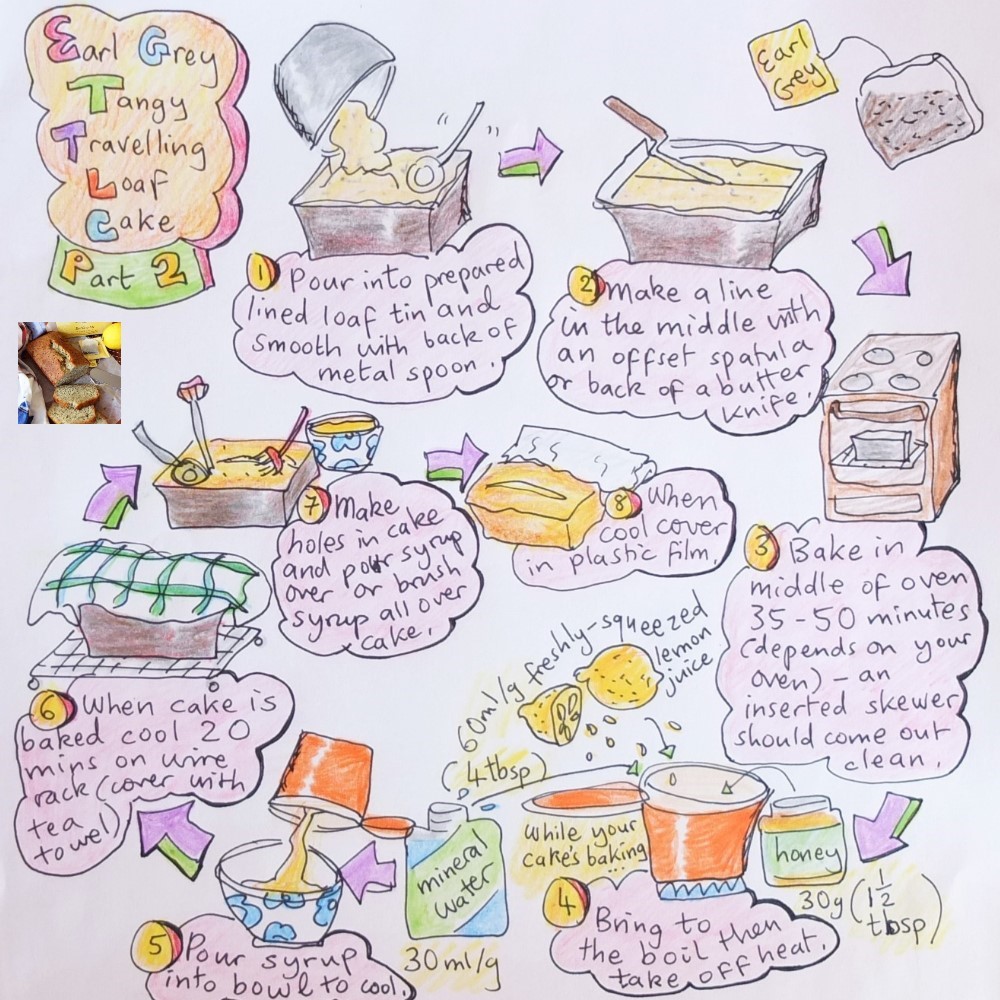 Earl Grey
Tangy
Travelling
Loaf
Cake
Part 2
Earl
Grey
1 Pour into prepared
lined loaf tin and
smooth with back of
metal spoon.
2 Make a line
in the middle with
an offset spatula
or back of a butter
knife.
3 Bake in
middle of oven
35-50 minutes
(depends on your
oven) - an
inserted skewer
should come out
clean.
60ml/g freshly-squeezed
lemon
juice
(4tbsp)
While your
cake's baking
honey
30g (1 1/2
tbsp)
mineral
water
30ml/g
4 Bring to
the boil then
take off heat.
5 Pour syrup
into bowl to cool.
6 When cake is
baked cool 20
mins on wire
rack (cover with
tea
towel)
7 Make
holes in cake
and pour syrup
over or brush
syrup all over
cake.
8 When
cool cover
in plastic film.